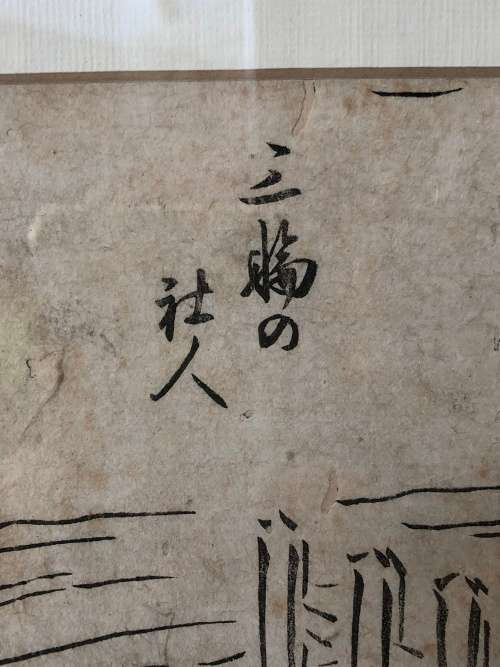 三輪の
社人